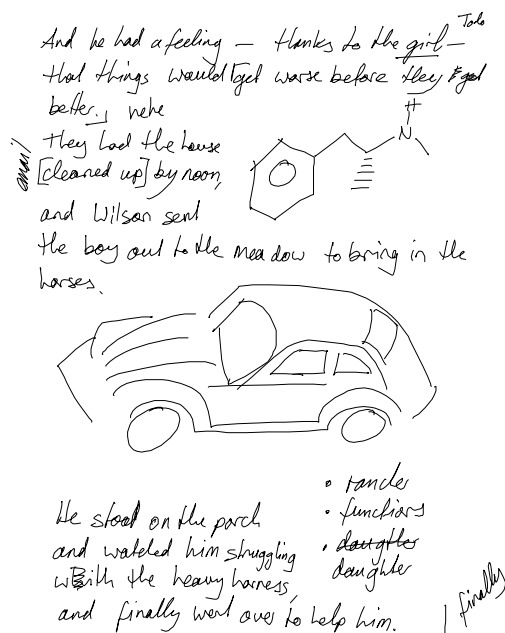 Todo
And he had a feeling — thanks to the girl —
that things would get worse before they get
better. hehe
they had the house
[cleaned up] by noon,
email
and Wilson sent
the boy out to the meadow to bring in the
horses.
H
N
He stood on the porch
and watched him struggling
with the heavy harness,
and finally went over to help him.
• functions
• daughter
daughter
finally